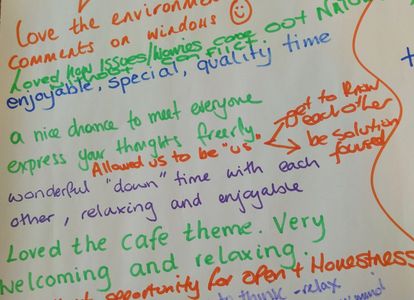 Love the environment
comments on windows
Loved how Issues/Worries came out
without conflict.
enjoyable, special, quality time
a nice chance to meet everyone
express your thoughts freerly
Allowed us to be "us"
get to know
each other
be solution
focused
wonderful "down" time with each
other, relaxing and enjoyable
Loved the cafe theme. Very
Welcoming and relaxing.
opportunity for open + Honestness
to think - relax
mind